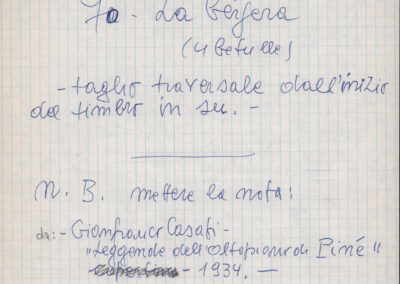 70 - La Bersera
(4 betulle)
- taglio traversale dall'inizio
del timbro in su. -
N. B. mettere la nota:
da: - Gianfranco Casati -
"Leggende dell'Altopiano di Piné"
- 1934. -